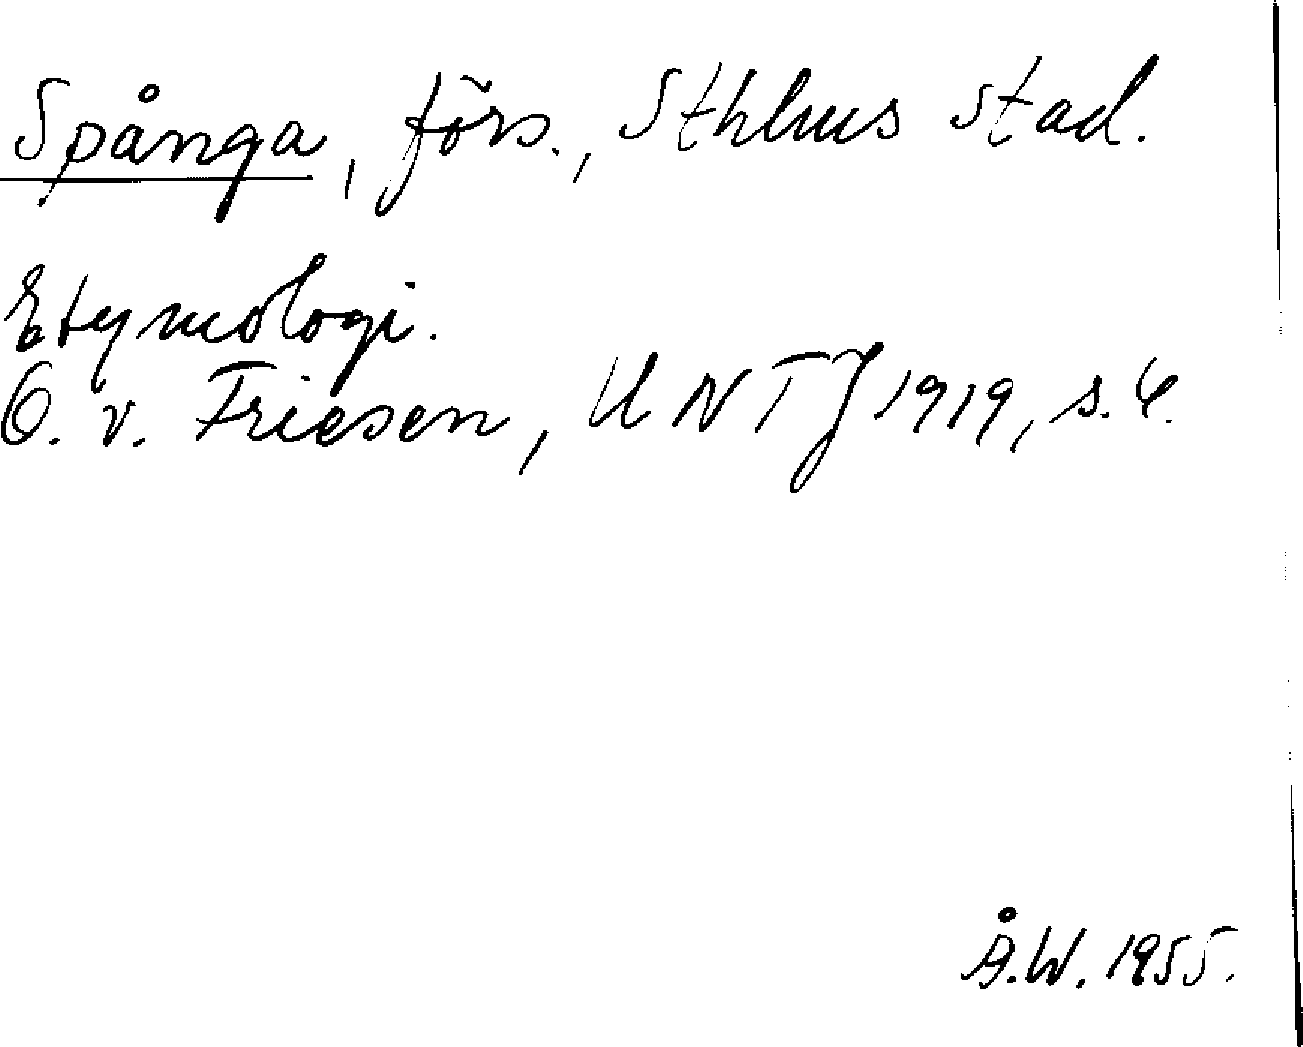 Spånga, förs., Sthlms stad.
Etymologi.
O. v. Friesen, UNTJ 1919, s. 4.
Å.W. 1955.